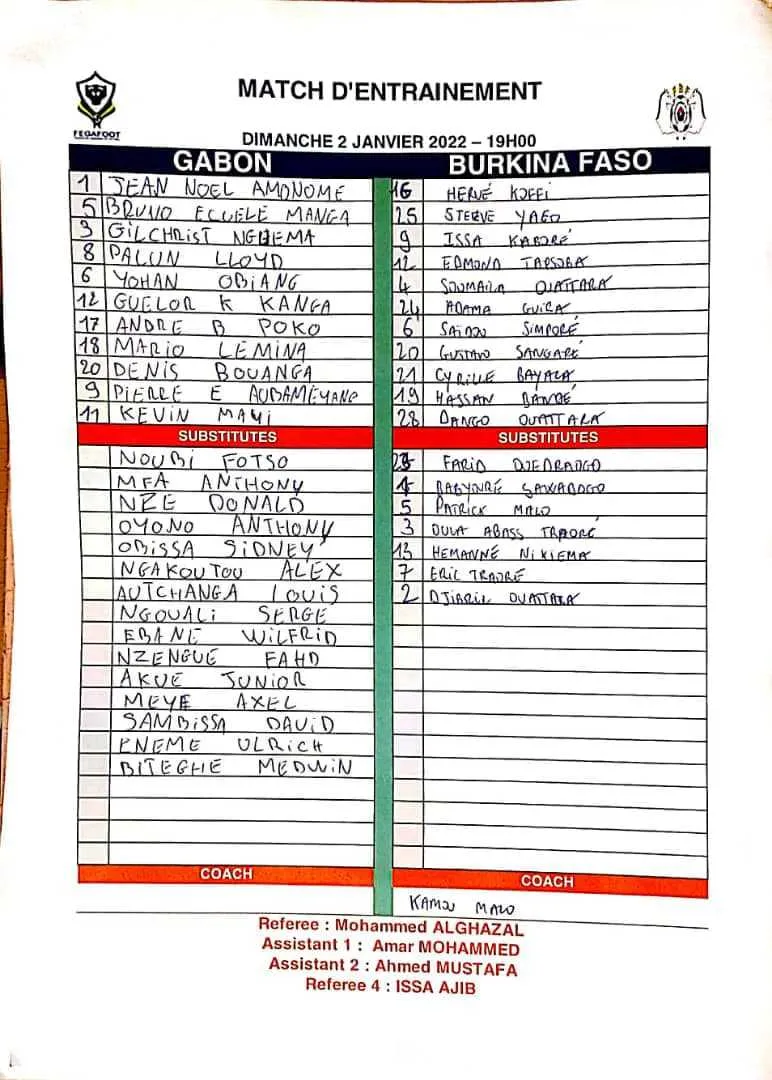 MATCH D'ENTRAINEMENT
FEGAFOOT
DIMANCHE 2 JANVIER 2022 – 19H00
GABON
1 JEAN NOEL AMONOME
5 BRUNO ECUELE MANGA
3 GILCHRIST NGUEMA
8 PALUN LLOYD
6 YOHAN OBIANG
12 GUELOR K KANGA
17 ANDRE B POKO
18 MARIO LEMINA
20 DENIS BOUANGA
9 PIERRE E AUBAMEYANG
11 KEVIN MAYI
SUBSTITUTES
NOUBI FOTSO
MFA ANTHONY
NZE DONALD
OYONO ANTHONY
OBISSA SIDNEY
NGAKOUTOU ALEX
AUTCHANGA LOUIS
NGOUALI SERGE
EBANE WILFRID
NZENGUE FAHD
AKUE JUNIOR
MEYE AXEL
SAMBISSA DAVID
ENEME ULRICH
BITEGHE MEDWIN
COACH
BURKINA FASO
16 HERVÉ KOFFI
25 STEEVE YAGO
9 ISSA KABORÉ
12 EDMOND TAPSOBA
4 SOUMAILA OUATTARA
24 ADAMA GUIRA
6 SAIDOU SIMPORÉ
20 GUSTAVO SANGARÉ
21 CYRILLE BAYALA
19 HASSAN BANDÉ
28 DANGO OUATTARA
SUBSTITUTES
FARID OUEDRAOGO
SAWADOGO
5 PATRICK MALO
3 OULA ABASS TRAORÉ
13 HEMANNE NIKIEMA
7 ERIC TRAORÉ
2 DJIBRIL OUATTARA
COACH
KAMOU MALO
Referee : Mohammed ALGHAZAL
Assistant 1 : Amar MOHAMMED
Assistant 2 : Ahmed MUSTAFA
Referee 4 : ISSA AJIB